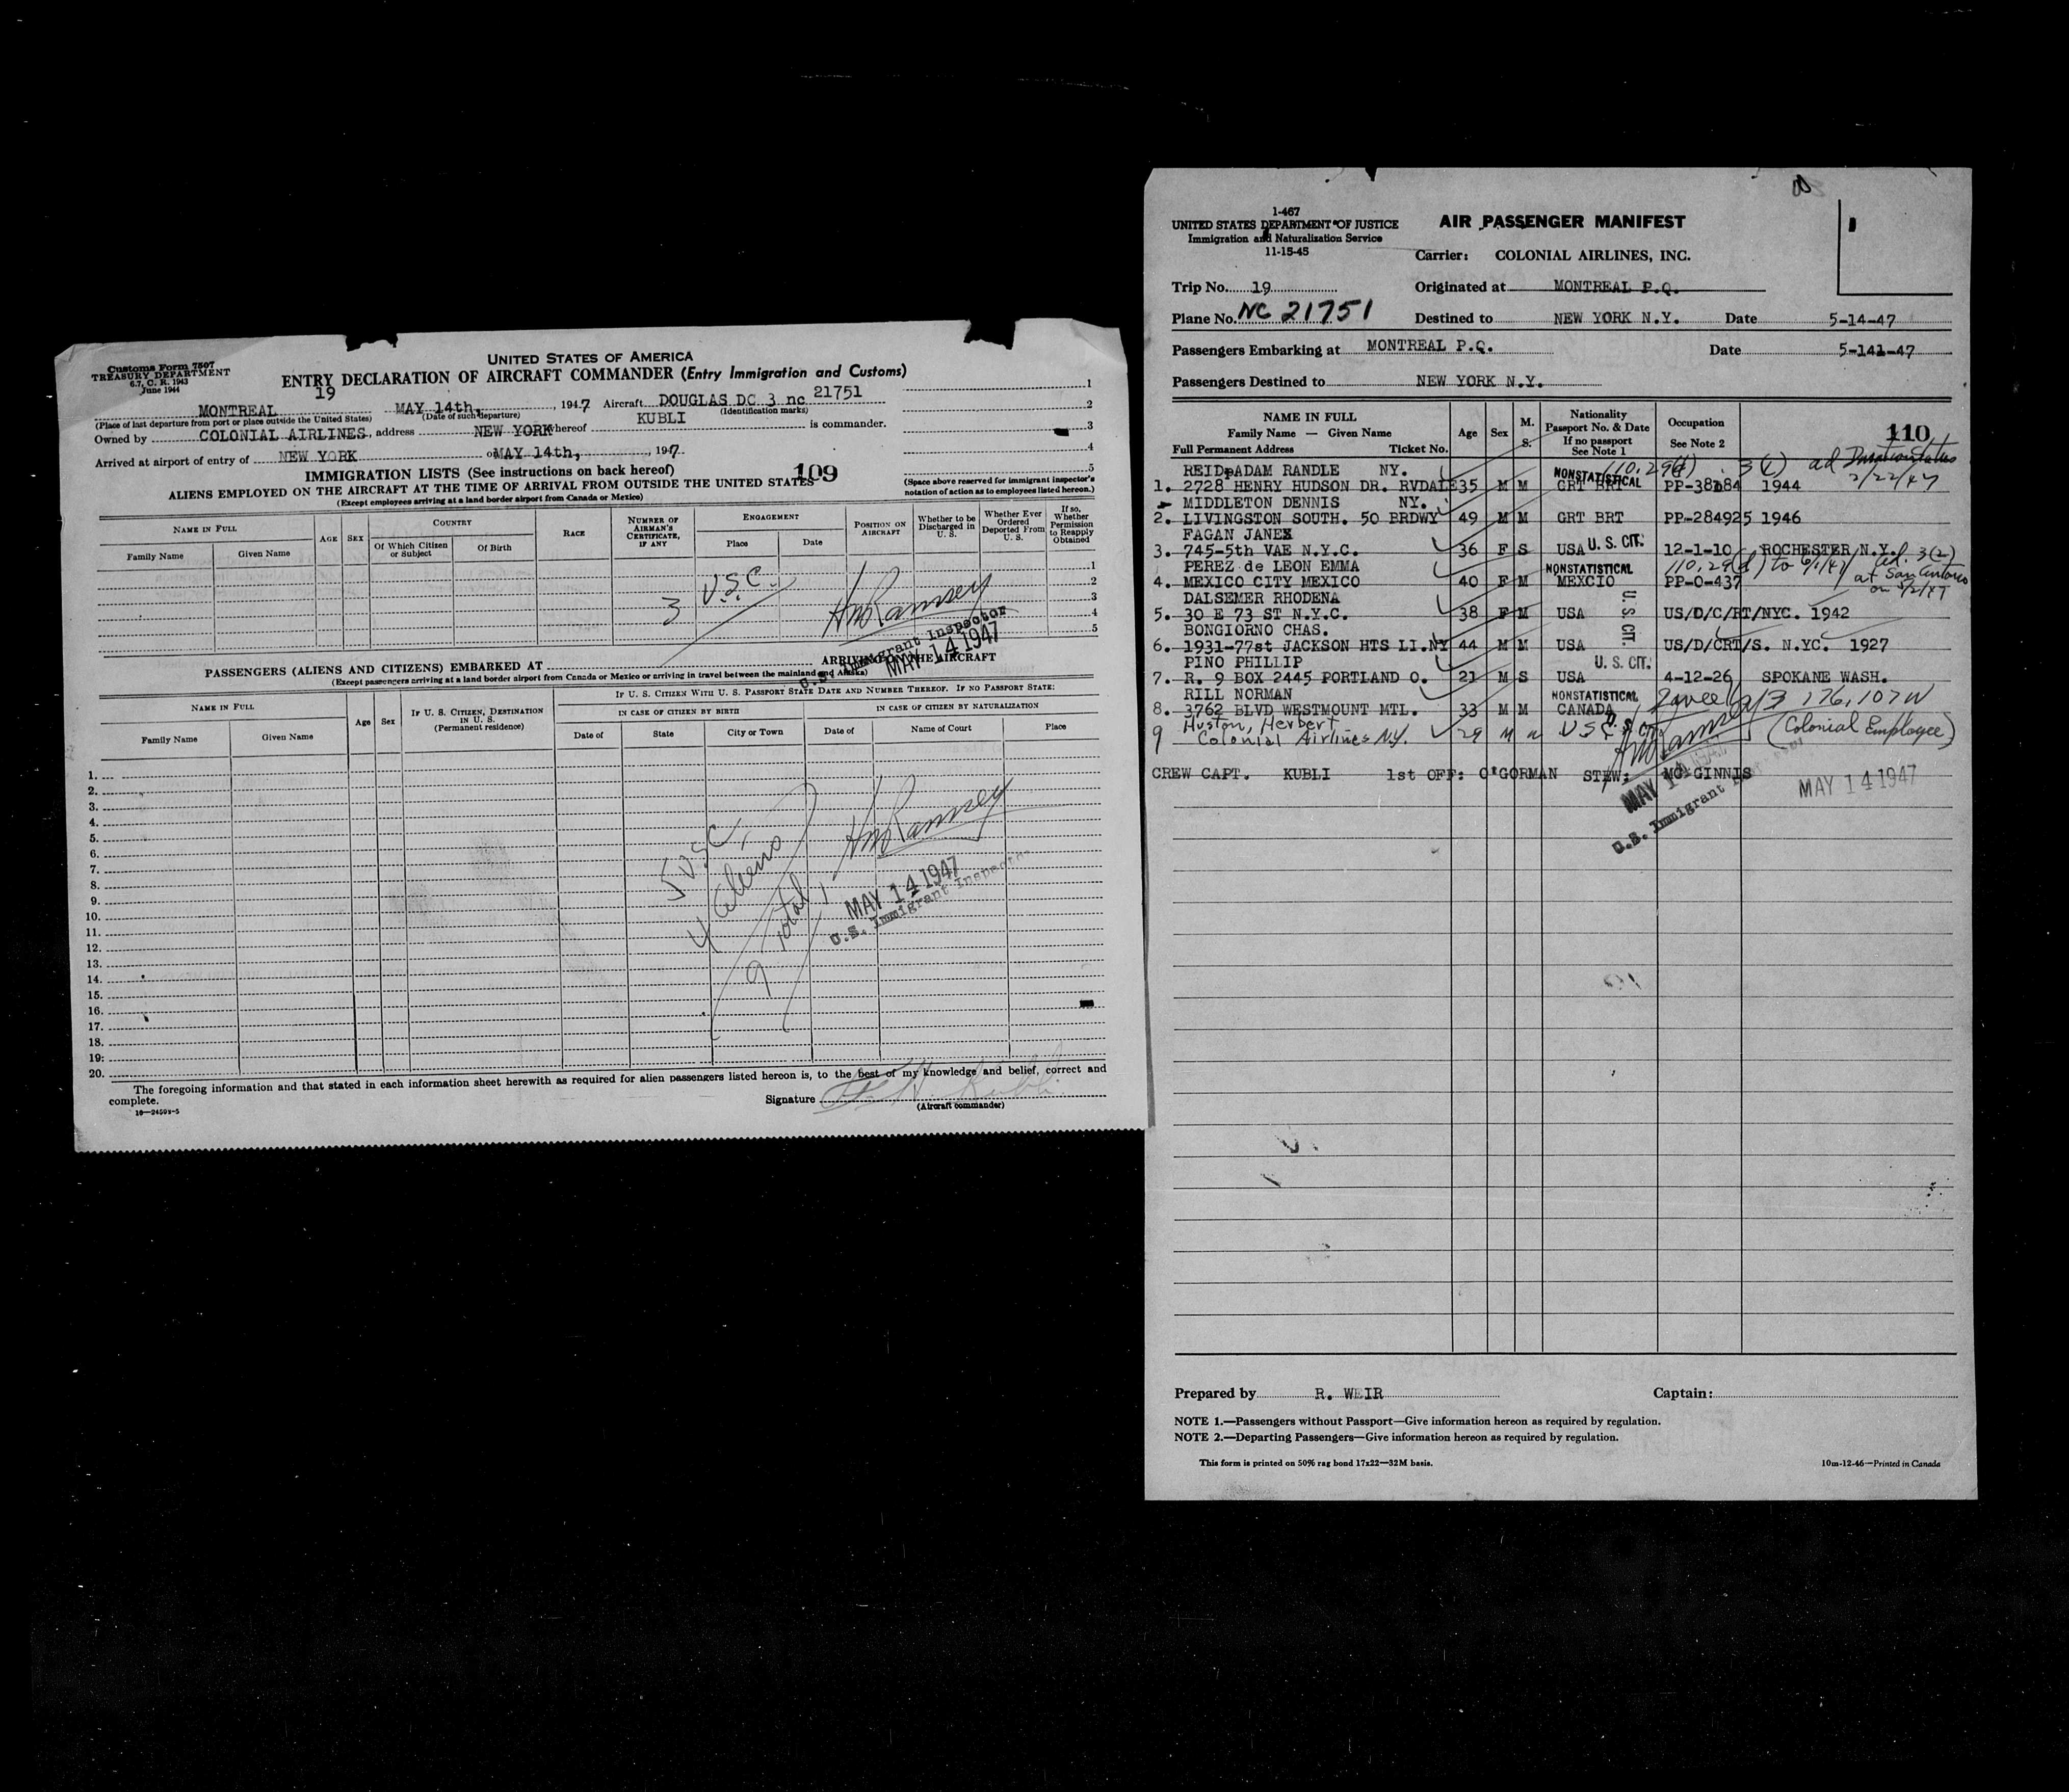 Customs Form 7507
TREASURY DEPARTMENT
6.7, C. R. 1943
June 1944
UNITED STATES OF AMERICA
ENTRY DECLARATION OF AIRCRAFT COMMANDER (Entry Immigration and Customs)
19
MONTREAL MAY 14th, , 1947 Aircraft DOUGLAS DC 3 nc 21751
(Place of last departure from port or place outside the United States) (Date of such departure) (Identification marks)
Owned by COLONIAL AIRLINES, address NEW YORK hereof KUBLI is commander.
Arrived at airport of entry of NEW YORK o MAY 14th, , 1947.
1
2
3
4
5
IMMIGRATION LISTS (See instructions on back hereof) 109
ALIENS EMPLOYED ON THE AIRCRAFT AT THE TIME OF ARRIVAL FROM OUTSIDE THE UNITED STATES
(Except employees arriving at a land border airport from Canada or Mexico)
(Space above reserved for immigrant inspector's
notation of action as to employees listed hereon.)
NAME IN FULL
Family Name Given Name
AGE SEX
COUNTRY
Of Which Citizen or Subject Of Birth
RACE
NUMBER OF AIRMAN'S CERTIFICATE, IF ANY
ENGAGEMENT
Place Date
POSITION ON AIRCRAFT
Whether to be Discharged in U. S.
Whether Ever Ordered Deported From U. S.
If so, Whether Permission to Reapply Obtained
1
2
3
4
5
3 U.S.C.
HmRamsey
U.S. Immigrant Inspector
MAY 14 1947
PASSENGERS (ALIENS AND CITIZENS) EMBARKED AT ARRIVING ON THE AIRCRAFT
(Except passengers arriving at a land border airport from Canada or Mexico or arriving in travel between the mainland and Alaska)
NAME IN FULL
Family Name Given Name
Age Sex
IF U. S. CITIZEN, DESTINATION IN U. S.
(Permanent residence)
IF U. S. CITIZEN WITH U. S. PASSPORT STATE DATE AND NUMBER THEREOF. IF NO PASSPORT STATE:
IN CASE OF CITIZEN BY BIRTH IN CASE OF CITIZEN BY NATURALIZATION
Date of State City or Town Date of Name of Court Place
1.
2.
3.
4.
5.
6.
7.
8.
9.
10.
11.
12.
13.
14.
15.
16.
17.
18.
19.
20.
5 U.S.C.
4 Aliens
9 total
HmRamsey
MAY 14 1947
U.S. Immigrant Inspector
The foregoing information and that stated in each information sheet herewith as required for alien passengers listed hereon is, to the best of my knowledge and belief, correct and
complete.
Signature Kubli
(Aircraft commander)
1-467
UNITED STATES DEPARTMENT OF JUSTICE
Immigration and Naturalization Service
11-15-45
AIR PASSENGER MANIFEST
Carrier: COLONIAL AIRLINES, INC.
Trip No. 19 Originated at MONTREAL P.Q.
Plane No. NC 21751 Destined to NEW YORK N.Y. Date 5-14-47
Passengers Embarking at MONTREAL P.Q. Date 5-141-47
Passengers Destined to NEW YORK N.Y.
NAME IN FULL
Family Name — Given Name
Full Permanent Address Ticket No.
Age
Sex
M. S.
Nationality
Passport No. & Date
If no passport
See Note 1
Occupation
See Note 2
110
REID ADAM RANDLE NY. NONSTATISTICAL 3(1)
2/22/47
1. 2728 HENRY HUDSON DR. RVDALE 35 M M GRT BRT 1944
MIDDLETON DENNIS NY.
2. LIVINGSTON SOUTH. 50 BRDWY 49 M M GRT BRT PP-284925 1946
FAGAN JANE
3. 745-5th VAE N.Y.C. 36 F S USA U. S. CIT. 12-1-10 ROCHESTER N.Y.
PEREZ de LEON EMMA NONSTATISTICAL 110.29(d) to 6/1/47 ad. 3(2)
4. MEXICO CITY MEXICO 40 F M MEXCIO PP-0-437 at San Antonio
DALSEMER RHODENA
5. 30 E 73 ST N.Y.C. 38 F M USA U. S. CIT. US/D/C/RT/NYC. 1942
BONGIORNO CHAS.
6. 1931-77st JACKSON HTS LI.NY 44 M M USA US/D/CRT/S. N.YC. 1927
PINO PHILLIP U. S. CIT.
7. R. 9 BOX 2445 PORTLAND O. 21 M S USA 4-12-26 SPOKANE WASH.
RILL NORMAN NONSTATISTICAL
8. 3762 BLVD WESTMOUNT MTL. 33 M M CANADA
Huston, Herbert
9 Colonial Airlines N.Y. 29 M USC (Colonial Employee)
CREW CAPT. KUBLI 1st OFF: O'GORMAN STEW: MC GINNIS
MAY 14 1947
U.S. Immigrant
MAY 14 1947
Prepared by R. WEIR Captain:
NOTE 1.—Passengers without Passport—Give information hereon as required by regulation.
NOTE 2.—Departing Passengers—Give information hereon as required by regulation.
This form is printed on 50% rag bond 17x22—32M basis. 10m-12-46—Printed in Canada